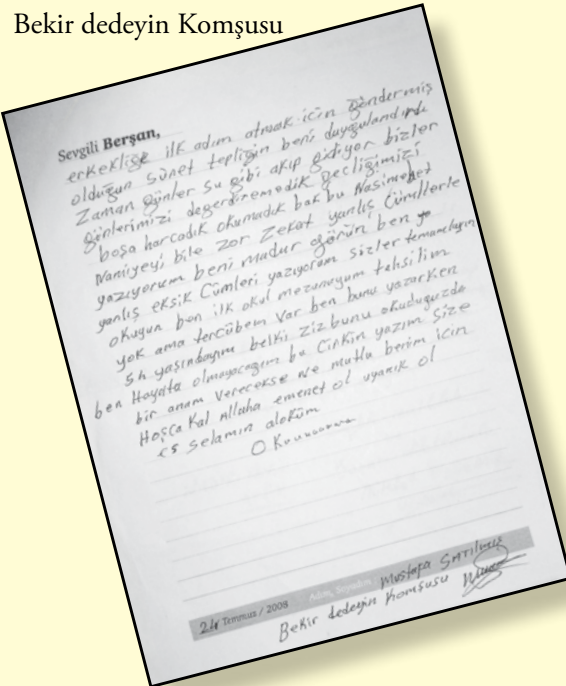 Bekir dedeyin Komşusu
Sevgili Berşan,
erkekliğe ilk adım atmak için göndermiş
olduğun sünet tepliğin beni duygulandırdı
Zaman günler su gibi akıp gidiyor bizler
günlerimizi değerdiremedik geçliğimizi
boşa harcadık okumadık bak bu Nasimehet
Namiyeyi bile zor Zekat yanlış Cümllerle
yazıyorum beni madur görün ben
yanlış eksik Cümleri yazıyorum sizler temamlayın
okuyun ben ilk okul mezunuyum tahsilim
yok ama tercübem var ben bunu yazarken
54 yaşındayım belki ziz bunu okuduguzda
ben Hayata olmayacağım bu Cinkin yazım size
bir anam verecekse ne mutlu berim için
Hoşca Kal Allaha emenet ol uyanık ol
es selamın aloküm
24 Temmuz / 2008 Adın, Soyadın Mustafa SATILMIŞ
Bekir dedeyin Komşusu